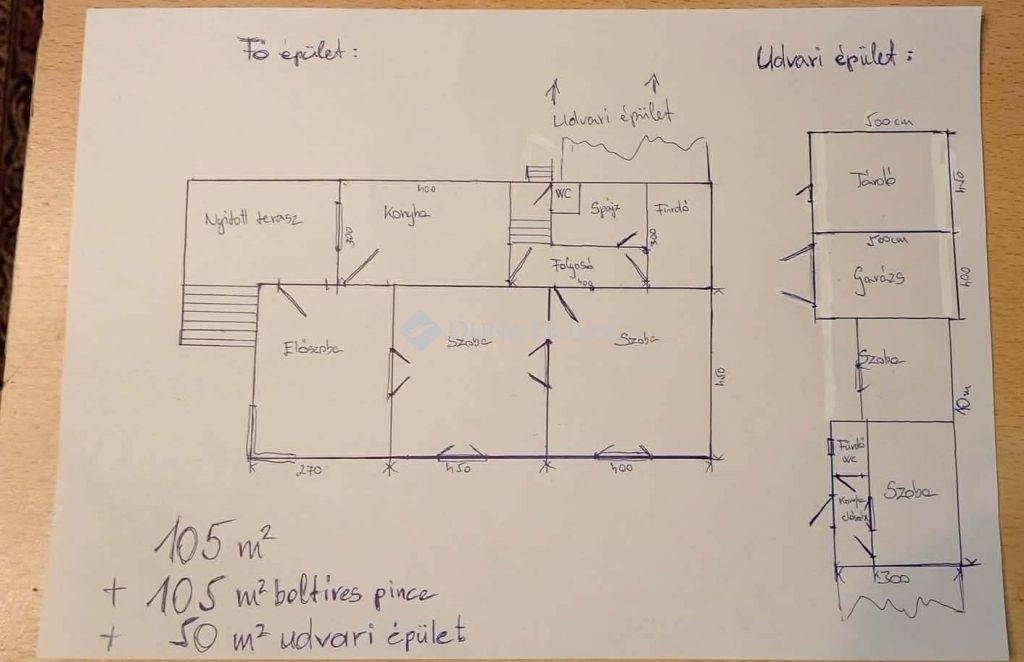 Fő épület:
Udvari épület:
Udvari épület
500 cm
Tároló
450
500cm
Garázs
400
Szoba
10 m
Fürdő
WC
Szoba
Konyha
előszoba
300
400
Nyitott terasz
300
Konyha
WC
Spájz
300
Fürdő
Folyosó
400
Előszoba
Szoba
Szoba
450
270
450
400
105 m²
+ 105 m² boltíves pince
+ 50 m² udvari épület